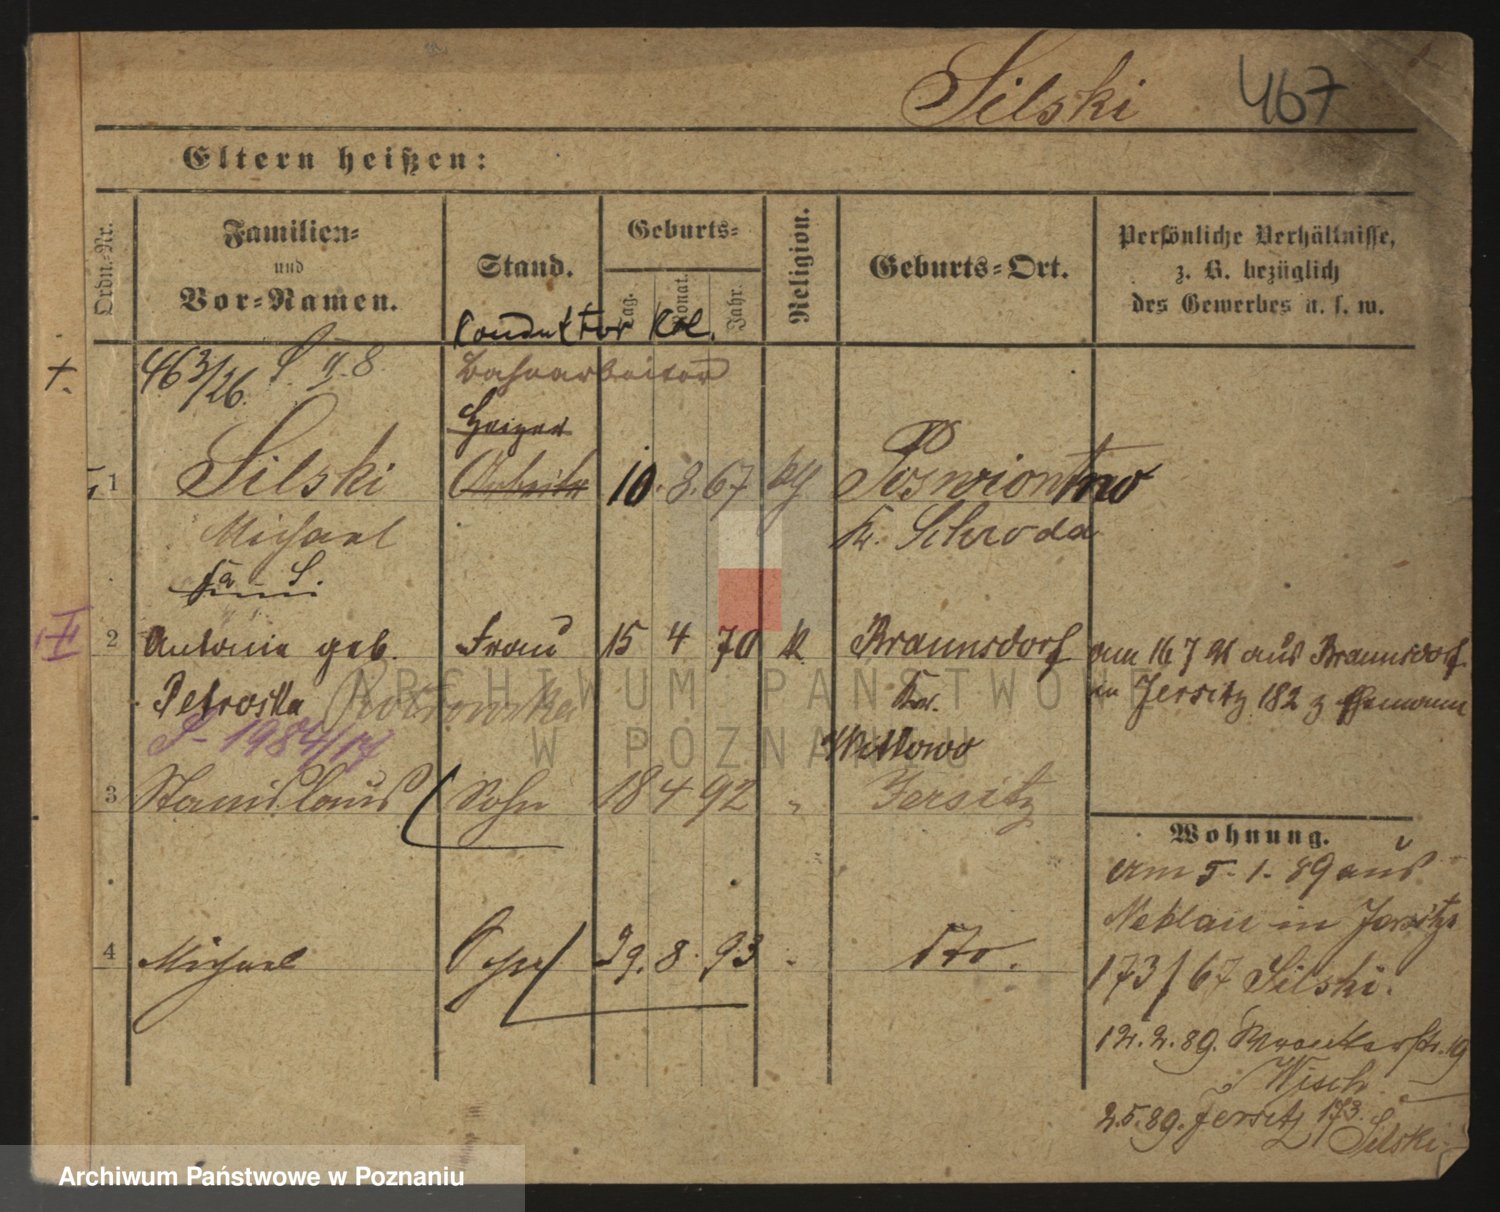 Silski 467
Eltern heißen:
Ordn.-Nr.
Familien-
und
Vor-Namen.
Stand.
Geburts-
Tag.
Monat.
Jahr.
Religion.
Geburts-Ort.
Persönliche Verhältnisse,
z. B. bezüglich
des Gewerbes u. s. w.
Konduktor
463/26
Bahnarbeiter
Heizer
1 Silski Arbeiter 10. 8. 67 Poswiontno
Michael Kr. Schroda
2 Antonie geb. Frau 15 4 70 k Braunsdorf
Petroska Kr.
Witkowo
am 16 7 91 aus Braunsdorf
in Jersitz 182 z Ehemann
3 Stanislaus Sohn 18 4 92 " Jersitz
4 Michael 29. 8. 93 dto.
Wohnung.
am 5. 1. 89 aus
Neklau in Jersitz
173/67 Silski.
12. 2. 89. Wronkerstr. 19
Wisch
2.5.89. Jersitz 173.
Silski
ARCHIWUM PAŃSTWOWE
W POZNANIU
Archiwum Państwowe w Poznaniu